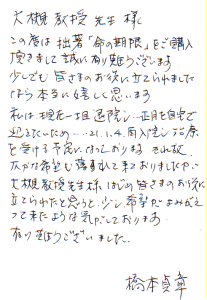 大槻教授先生様
この度は拙著「命の期限」をご購入
頂きまして誠に有り難うございます
少しでも皆さまのお役に立てられました
なら本当に嬉しく思います
私は現在一旦退院し…正月を自宅で
迎えたいため…21.1.4.再入院し
を受ける予定になっております それ故
大槻教授先生様はじめ皆さまのお役に
立てられたと思うと、少し希望がよみがえ
って来たような気がしております
有り難うございました。
橋本貞章